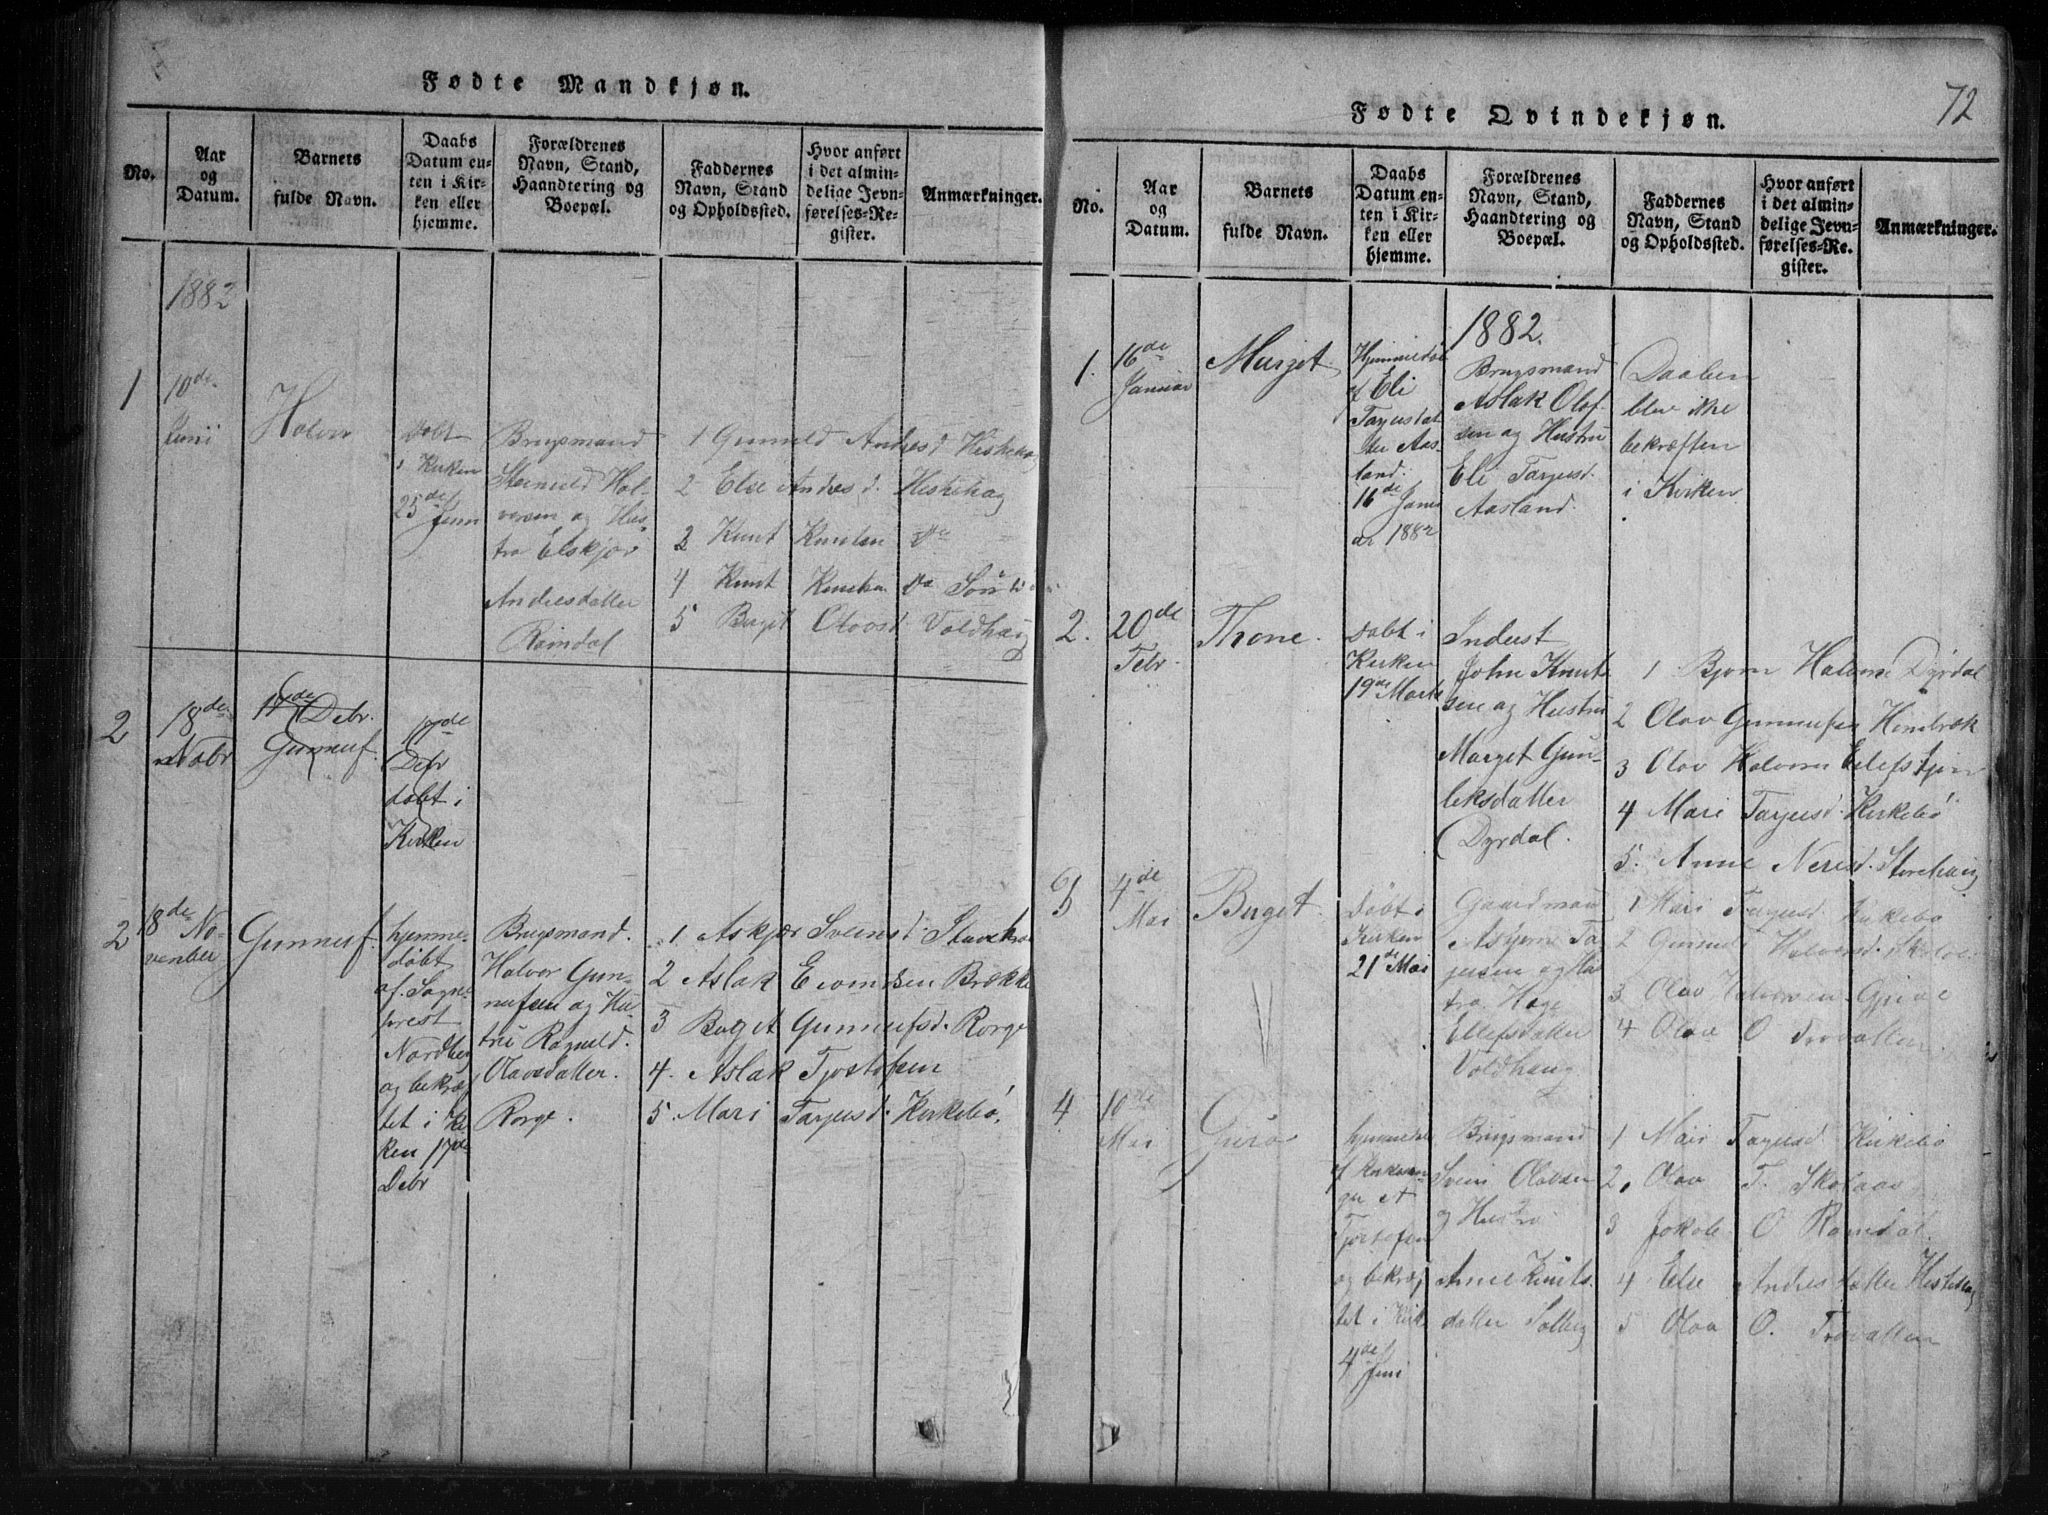 Fødte Mandkjøn.
No.
Aar
og
Datum.
Barnets
fulde Navn.
Daabs
Datum en-
ten i Kir-
ken eller
hjemme.
Forældrenes
Navn, Stand,
Haandtering og
Boepæl.
Faddernes
Navn, Stand
og Opholdssted.
Hvor anført
i det almin-
delige Jevn-
førelses-Re-
gister.
Anmærkninger.
1882
1
10de
Juni
Halvor
Døbt
i Kirken
25de
Juni
Brugsmand
Steinuld Hal-
vorsen og Hus-
tro Elskjør
Andresdatter
Romdal
1 Gunuld Andresd Heskehag
2 Else Andresd. Heskehag
3 Knut Knutsen do
4 Knut Knutsen do
5 Birget Olavsd Voldhaug
2
18de
Nobr
17de Debr.
Gunnuf.
17de
Debr
døbt i
Kirken
2
18de No-
venber
Gunnuf.
hjemme-
døbt
af Sogne-
prest
Nordberg
og bekræf
tet i Kir
ken 17de
Debr
Brugsmand.
Halvor Gun-
nufsen og Hu-
tru Ragnild.
Olavsdatter.
Rorge.
1 Askjær Sveinsd
2 Aslak Evondsen Brække
3 Birget Gunnufsd. Rorge
4. Aslak Tjostofsen
5 Mari Tarjeisd. Kirkebø.
72
Fødte Qvindekjøn.
No.
Aar
og
Datum.
Barnets
fulde Navn.
Daabs
Datum en-
ten i Kir-
ken eller
hjemme.
Forældrenes
Navn, Stand,
Haandtering og
Boepæl.
Faddernes
Navn, Stand
og Opholdssted.
Hvor anført
i det almin-
delige Jevn-
førelses-Re-
gister.
Anmærkninger.
1882.
1.
16de
Januar
Marget
Hjemmedøbt
af Eli
Tarjeisdat
ter Aas-
land.
16de Janu
ar 1882
Brugsmand
Aslak Olaf-
sen og Hustru
Eli Tarjeisd.
Aasland.
Daaben
blev ikke
bekræften
i Kirken
2.
20de
Febr.
Thone.
Døbt i
Kirken
19de Marts
Inderst
John Knut
sen og Hustru
Marget Gun-
leksdatter
Dyrdal.
1 Bjorn Halvorsen Dyrdal
2 Olav Gunnufsen Kimbræk
3 Olav Halvorsen Elefstjøn
4 Mari Tarjeisd. Kirkebø
5. Anne Nerisd. Storehaug
3
4de
Mai
Birget.
Døbt i
Kirken
21de Mai
Gaardman
Asbjørn Ta
rjeisen og Hus
tro Hæge
Ellefsdatter
Voldhaug
1 Mari Tarjeisd Kirkebø
2 Gunuld Halvorsd.
3 Olav Halvorsen
4 Olav O Trovatten.
4
10de
Mai
Guro
hjemmedøbt
af Kirkesan-
ger A
Tjostofsen
og bekræf
tet i Kirk
4de Juni
Brugsmand
Svein Olavsen
og Hustro
Anne Knuts.
datter Solberg
1 Mari Tarjeisd Kirkebø
2. Olav T. Skolaas
3 Jakob O Ramdal.
4 Else Andresdatter Heskehag
5 Olav O. Trovatten